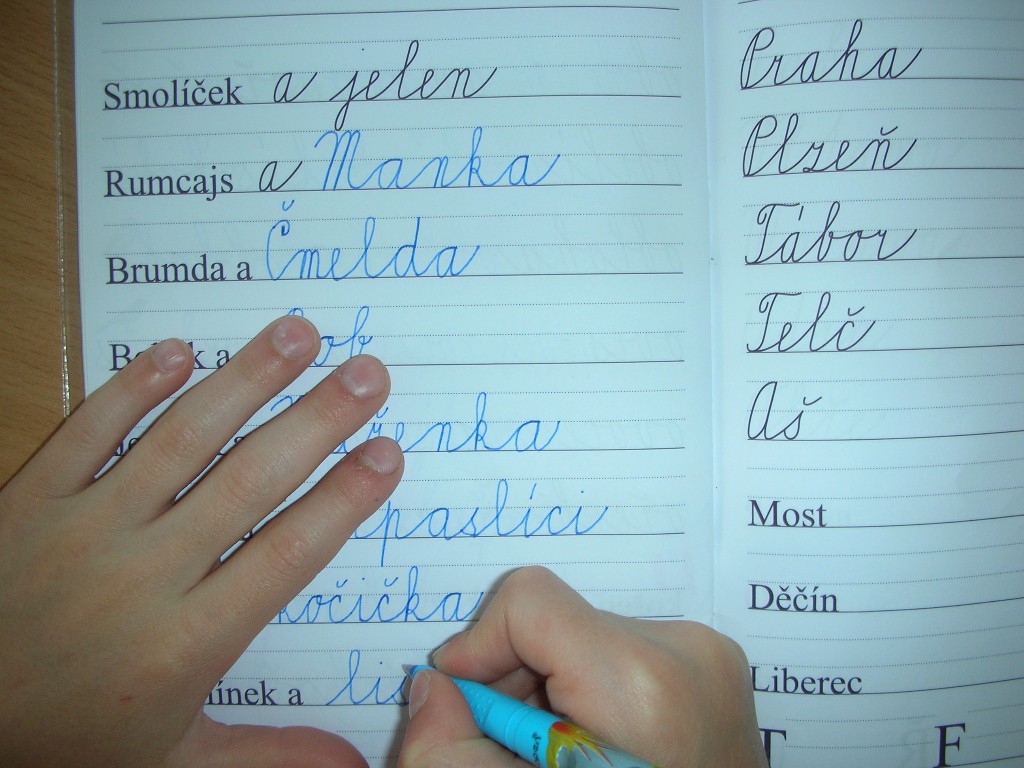 Smolíček a jelen
Rumcajs a Manka
Brumda a Čmelda
a
řenka
paslíci
kočička
a
Praha
Plzeň
Tábor
Telč
Aš
Most
Děčín
Liberec
T F